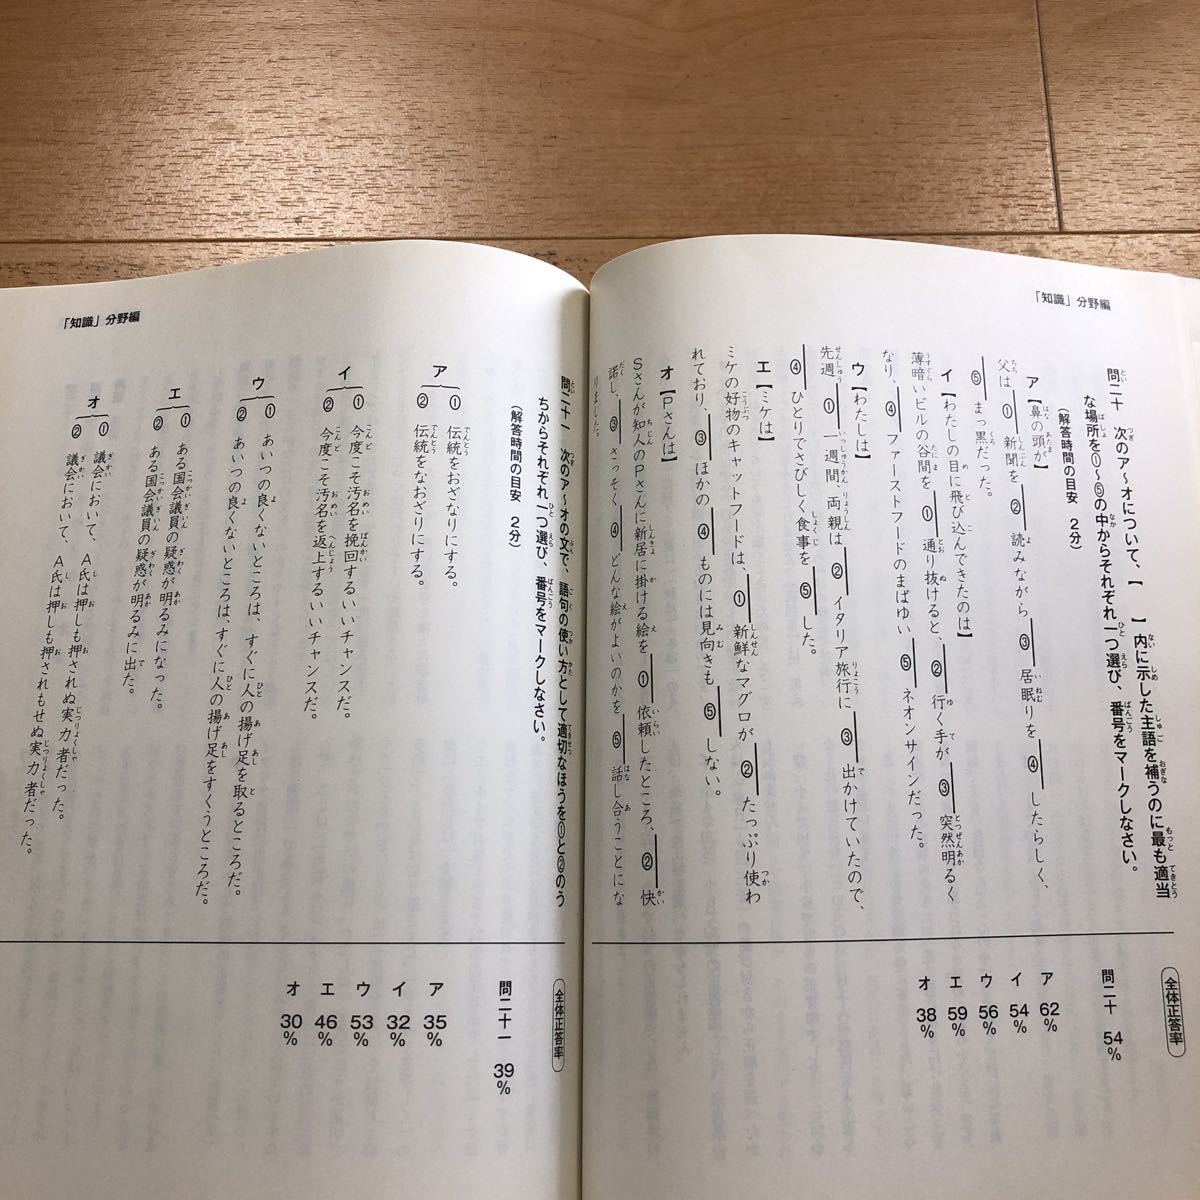 「知識」分野編
問二十　次のア～オについて、【　　】内に示した主語を補うのに最も適当
な場所を①～⑤の中からそれぞれ一つ選び、番号をマークしなさい。
（解答時間の目安　2分）
ア【鼻の頭が】
父は ① 新聞を ② 読みながら ③ 居眠りを ④ したらしく、
⑤ まっ黒だった。
イ【わたしの目に飛び込んできたのは】
薄暗いビルの谷間を ① 通り抜けると、 ② 行く手が ③ 突然明るく
なり、 ④ ファーストフードのまばゆい ⑤ ネオンサインだった。
ウ【わたしは】
先週 ① 一週間、両親は ② イタリア旅行に ③ 出かけていたので、
④ ひとりでさびしく食事を ⑤ した。
エ【ミケは】
ミケの好物のキャットフードは、 ① 新鮮なマグロが ② たっぷり使わ
れており、 ③ ほかの ④ ものには見向きも ⑤ しない。
オ【Pさんは】
Sさんが知人のPさんに新居に掛ける絵を ① 依頼したところ、 ② 快
諾し、 ③ さっそく ④ どんな絵がよいのかを ⑤ 話し合うことにな
りました。
全体正答率
問二十　54%
ア　62%
イ　54%
ウ　56%
エ　59%
オ　38%
「知識」分野編
問二十一　次のア～オの文で、語句の使い方として適切なほうを①と②のう
ちからそれぞれ一つ選び、番号をマークしなさい。
（解答時間の目安　2分）
ア
① 伝統をおざなりにする。
② 伝統をなおざりにする。
イ
① 今度こそ汚名を挽回するいいチャンスだ。
② 今度こそ汚名を返上するいいチャンスだ。
ウ
① あいつの良くないところは、すぐに人の揚げ足を取るところだ。
② あいつの良くないところは、すぐに人の揚げ足をすくうところだ。
エ
① ある国会議員の疑惑が明るみになった。
② ある国会議員の疑惑が明るみに出た。
オ
① 議会において、A氏は押しも押されぬ実力者だった。
② 議会において、A氏は押しも押されもせぬ実力者だった。
全体正答率
問二十一　39%
ア　35%
イ　32%
ウ　53%
エ　46%
オ　30%